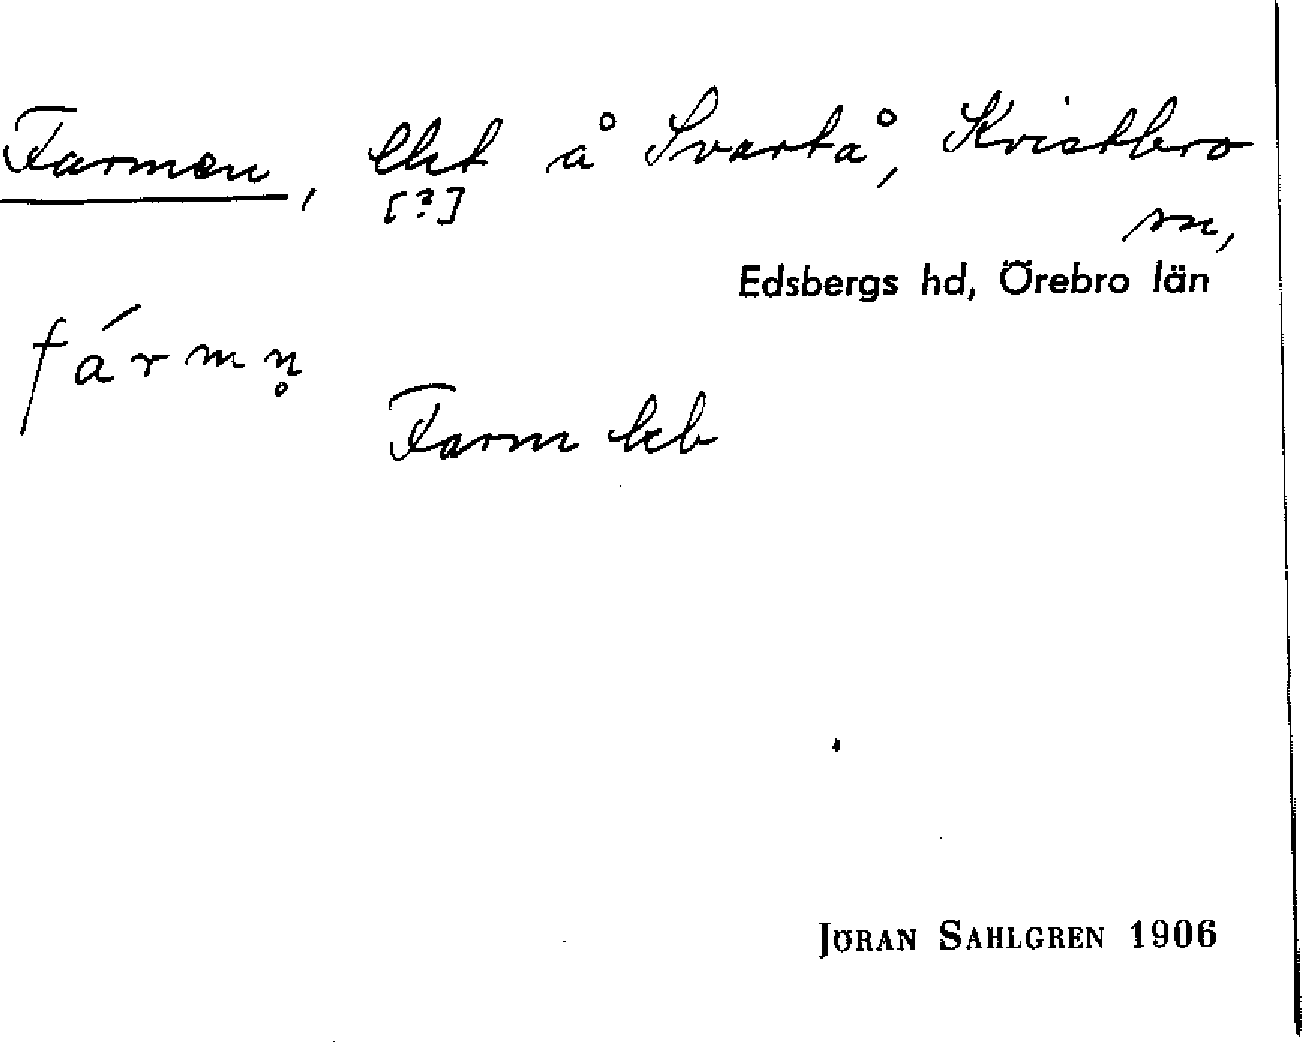 Farmen, lht å Svartå, Kvistbro
[?]
sn,
Edsbergs hd, Örebro län
fármn̥
Farm kb
JÖRAN SAHLGREN 1906